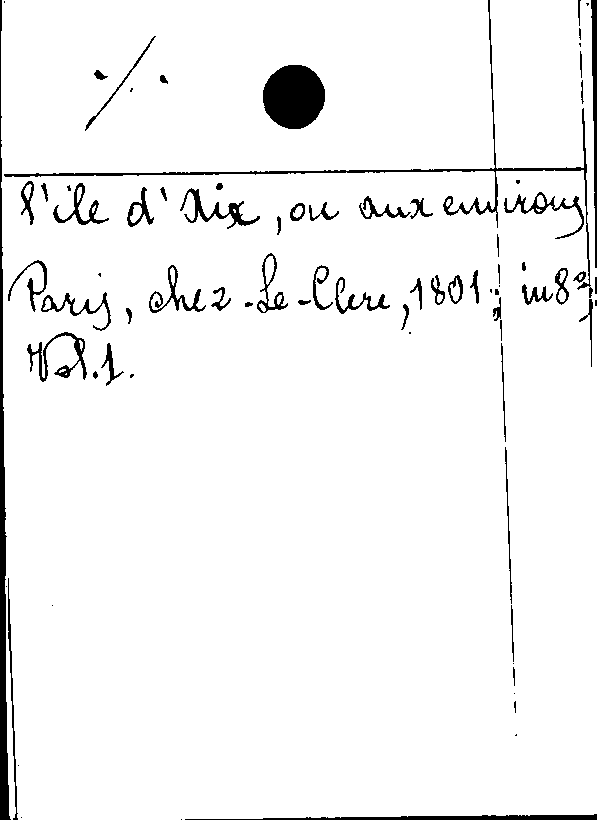 ./.
l'ile d'Aix, ou aux environs
Paris, chez Le-Clere, 1801; in 8º,
Vol. 1.